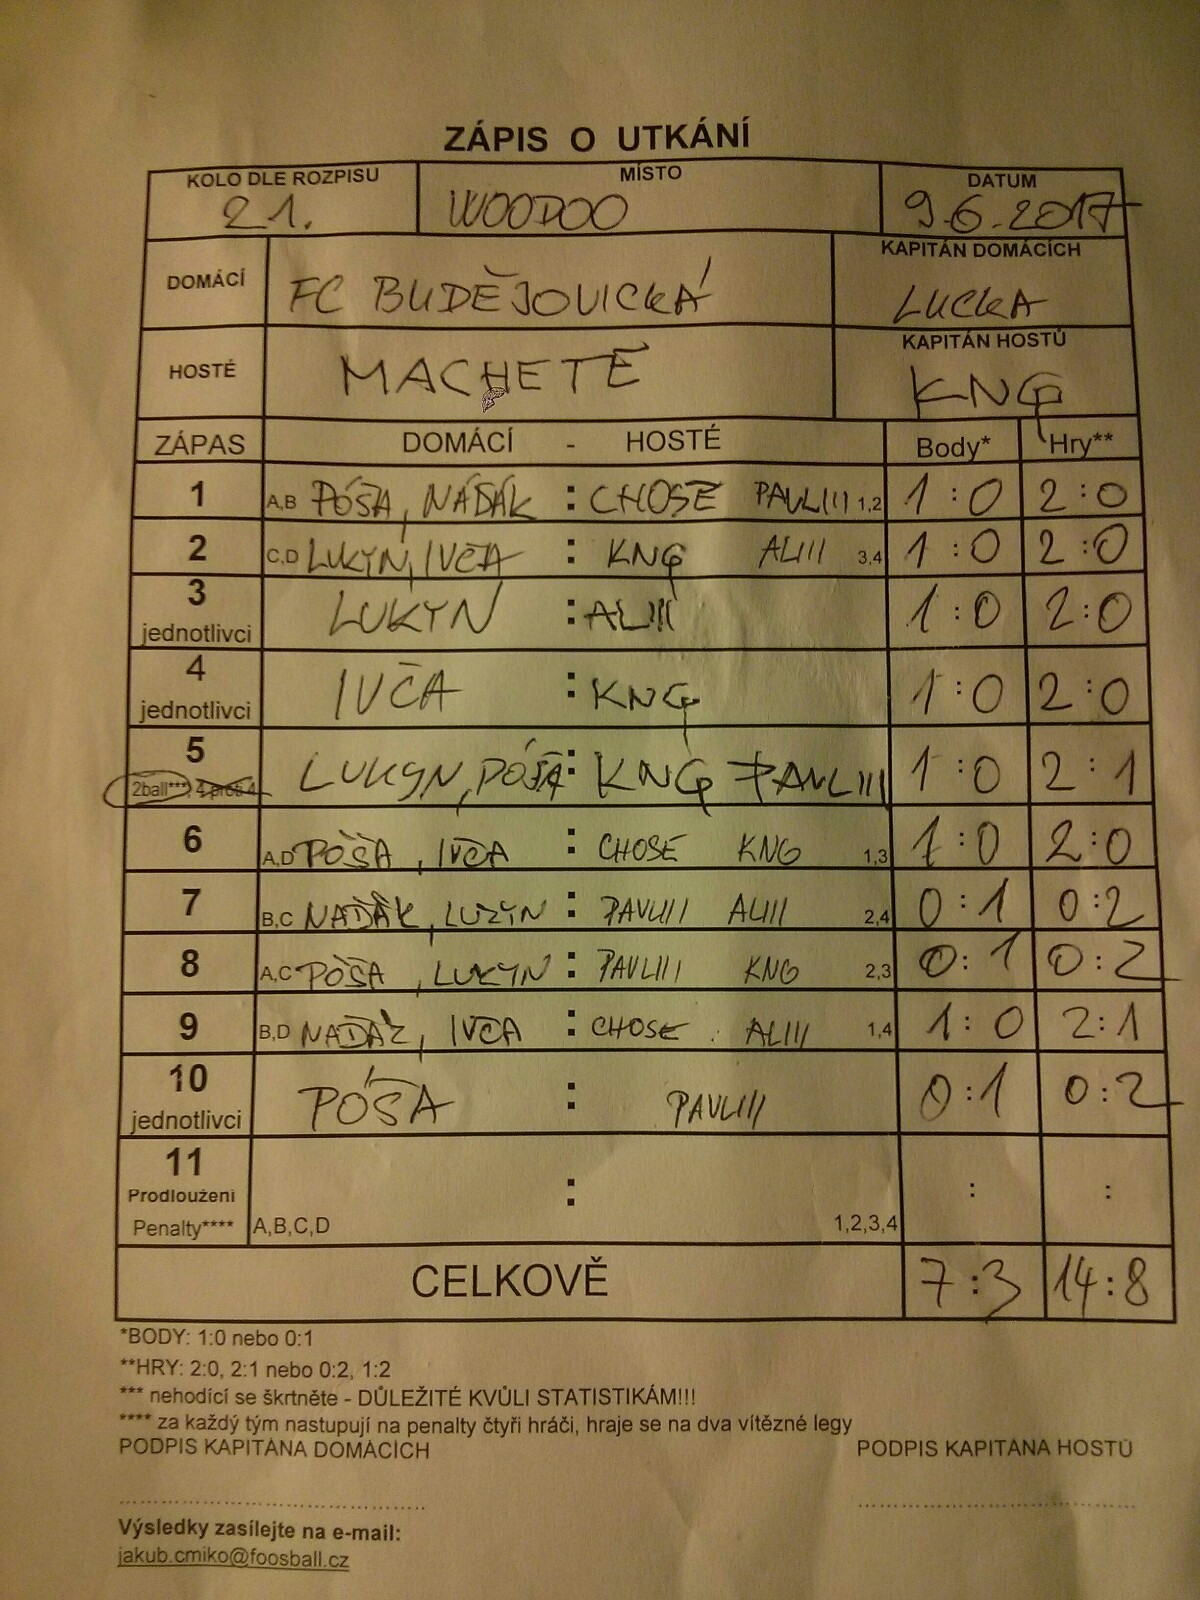 ZÁPIS O UTKÁNÍ
KOLO DLE ROZPISU MÍSTO DATUM
21. WOODOO 9.6.2017
DOMÁCÍ FC BUDĚJOVICKÁ KAPITÁN DOMÁCÍCH
LUCKA
HOSTÉ MACHETE KAPITÁN HOSTŮ
KNG
ZÁPAS DOMÁCÍ - HOSTÉ Body* Hry**
1 A,B PÓŠA, NAĎÁK : CHOSE PAVLIII 1,2 1:0 2:0
2 C,D LUKYN, IVČA : KNG ALIII 3,4 1:0 2:0
3 jednotlivci LUKYN : ALIII 1:0 2:0
4 jednotlivci IVČA : KNG 1:0 2:0
5 LUKYN, PÓŠA : KNG PAVLIII 1:0 2:1
2ball*** 4 proti 4
6 A,D PÓŠA, IVČA : CHOSE KNG 1,3 1:0 2:0
7 B,C NAĎÁK, LUKYN : PAVLIII ALIII 2,4 0:1 0:2
8 A,C PÓŠA, LUKYN : PAVLIII KNG 2,3 0:1 0:2
9 B,D NAĎÁK, IVČA : CHOSE ALIII 1,4 1:0 2:1
10 jednotlivci PÓŠA : PAVLIII 0:1 0:2
11 : : :
Prodloužení
Penalty**** A,B,C,D 1,2,3,4
CELKOVĚ 7:3 14:8
*BODY: 1:0 nebo 0:1
**HRY: 2:0, 2:1 nebo 0:2, 1:2
*** nehodící se škrtněte - DŮLEŽITÉ KVŮLI STATISTIKÁM!!!
**** za každý tým nastupují na penalty čtyři hráči, hraje se na dva vítězné legy
PODPIS KAPITÁNA DOMÁCÍCH PODPIS KAPITÁNA HOSTŮ
Výsledky zasílejte na e-mail:
jakub.cmiko@foosball.cz